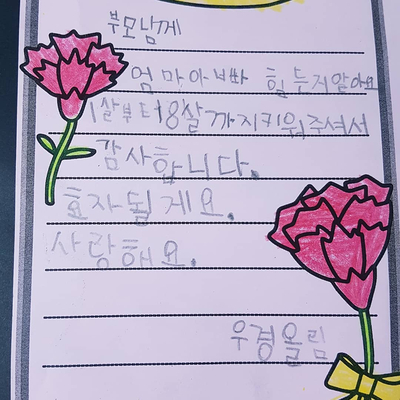 부모님께
엄마아빠 힘두지않아요
1살부터18살까지키워주셔서
감사합니다.
효자될게요.
사랑해요.
우경올림